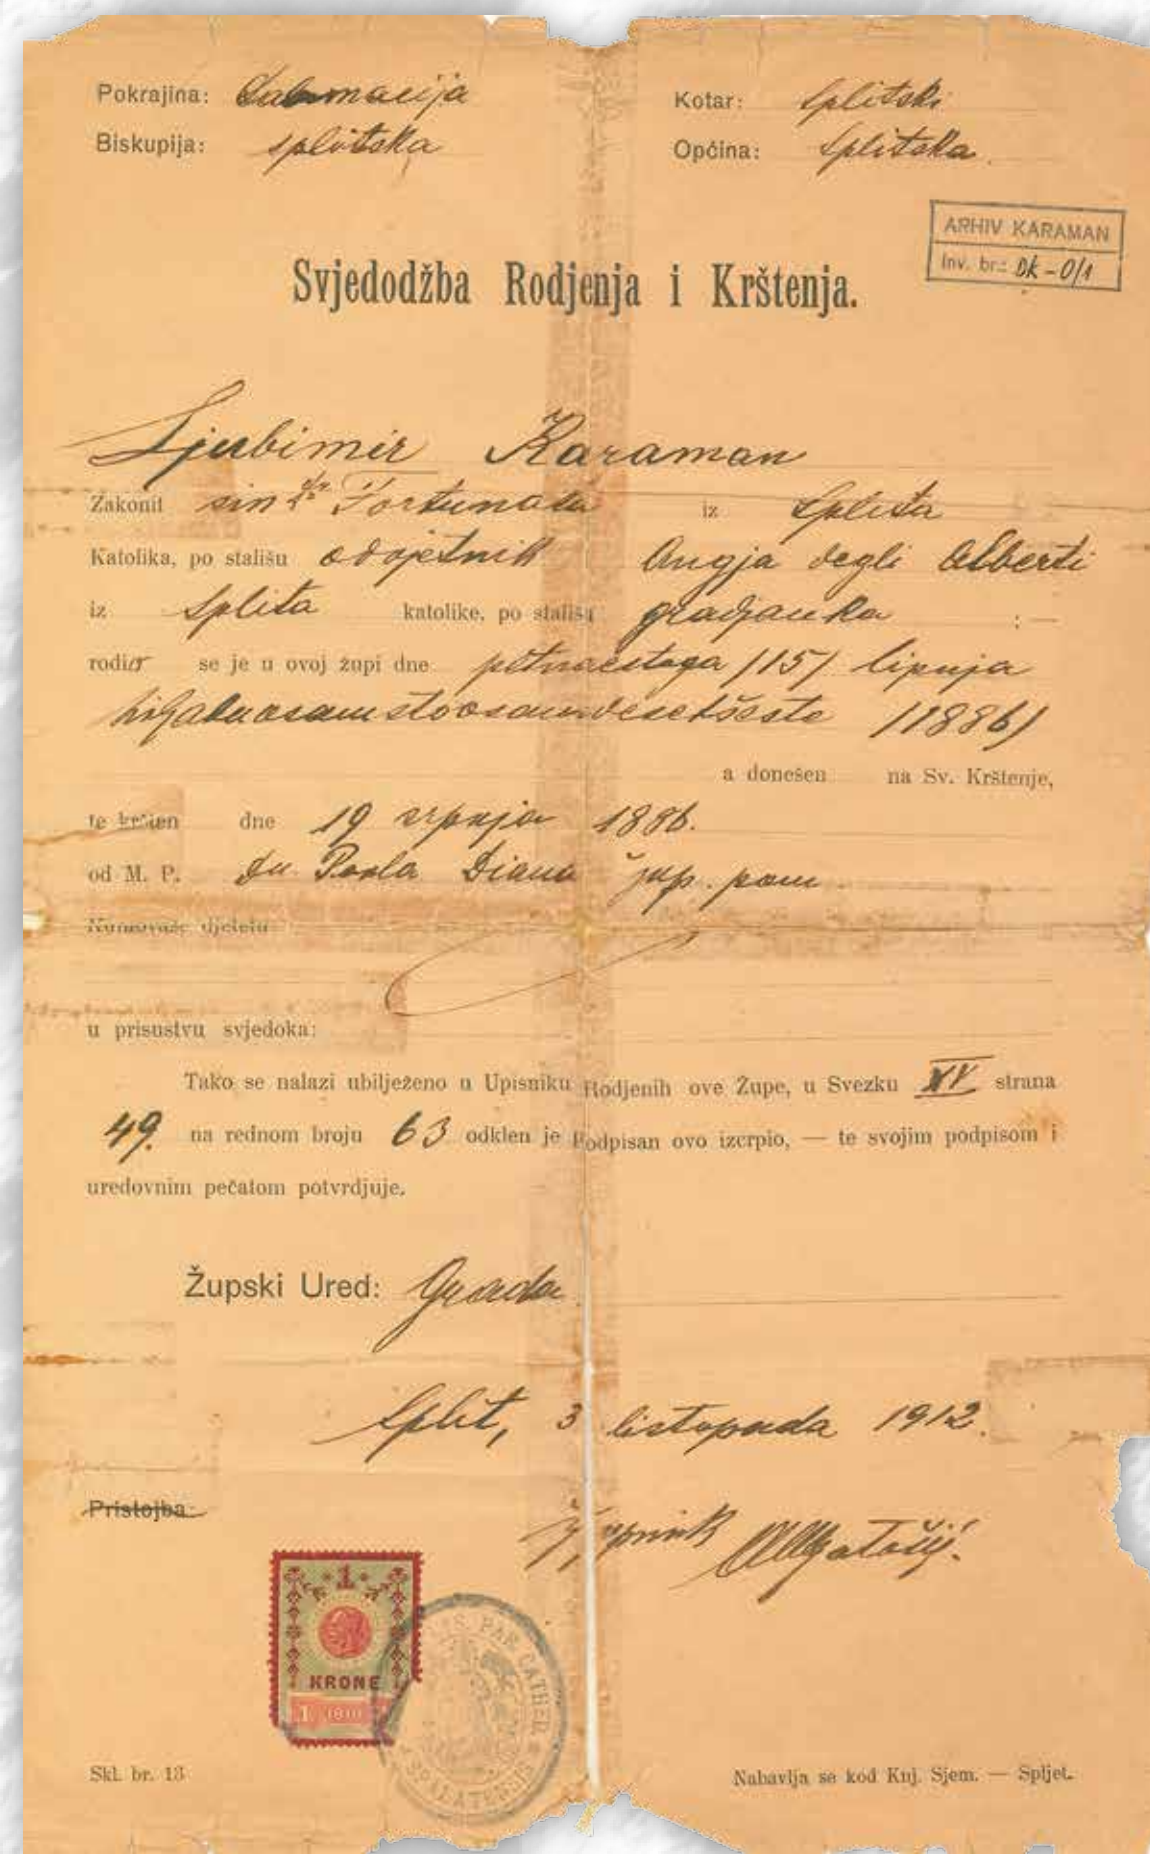 Pokrajina: Dalmacija
Kotar: Splitski
Biskupija: splitska
Općina: Splitska
ARHIV KARAMAN
Inv. br.: DK-0/1
Svjedodžba Rodjenja i Krštenja.
Ljubimir Karaman
Zakonit sin dr Fortunata iz Splita
Katolika, po stališu odvjetnik Angja degli Alberti
iz Splita katolike, po stališu gradjanka : —
rodio se je u ovoj župi dne petnaestoga /15/ lipnja
hiljaduosamstoosamdesetšeste /1886/
a donešen na Sv. Krštenje,
te kršten dne 19 srpnja 1886.
od M. P. Du. Pavla Diana žup. pom
Kumovaše djetetu
u prisustvu svjedoka:
Tako se nalazi ubilježeno u Upisniku Rodjenih ove Župe, u Svezku XV strana
49. na rednom broju 63 odklen je Podpisan ovo izcrpio, — te svojim podpisom i
uredovnim pečatom potvrdjuje.
Župski Ured: Grada
Split, 3 listopada 1912.
Pristojba:
Župnik
1
KRONE
1 1910
PAR CATHED
SPALATENSIS
Skl. br. 13
Nabavlja se kod Knj. Sjem. — Spljet.